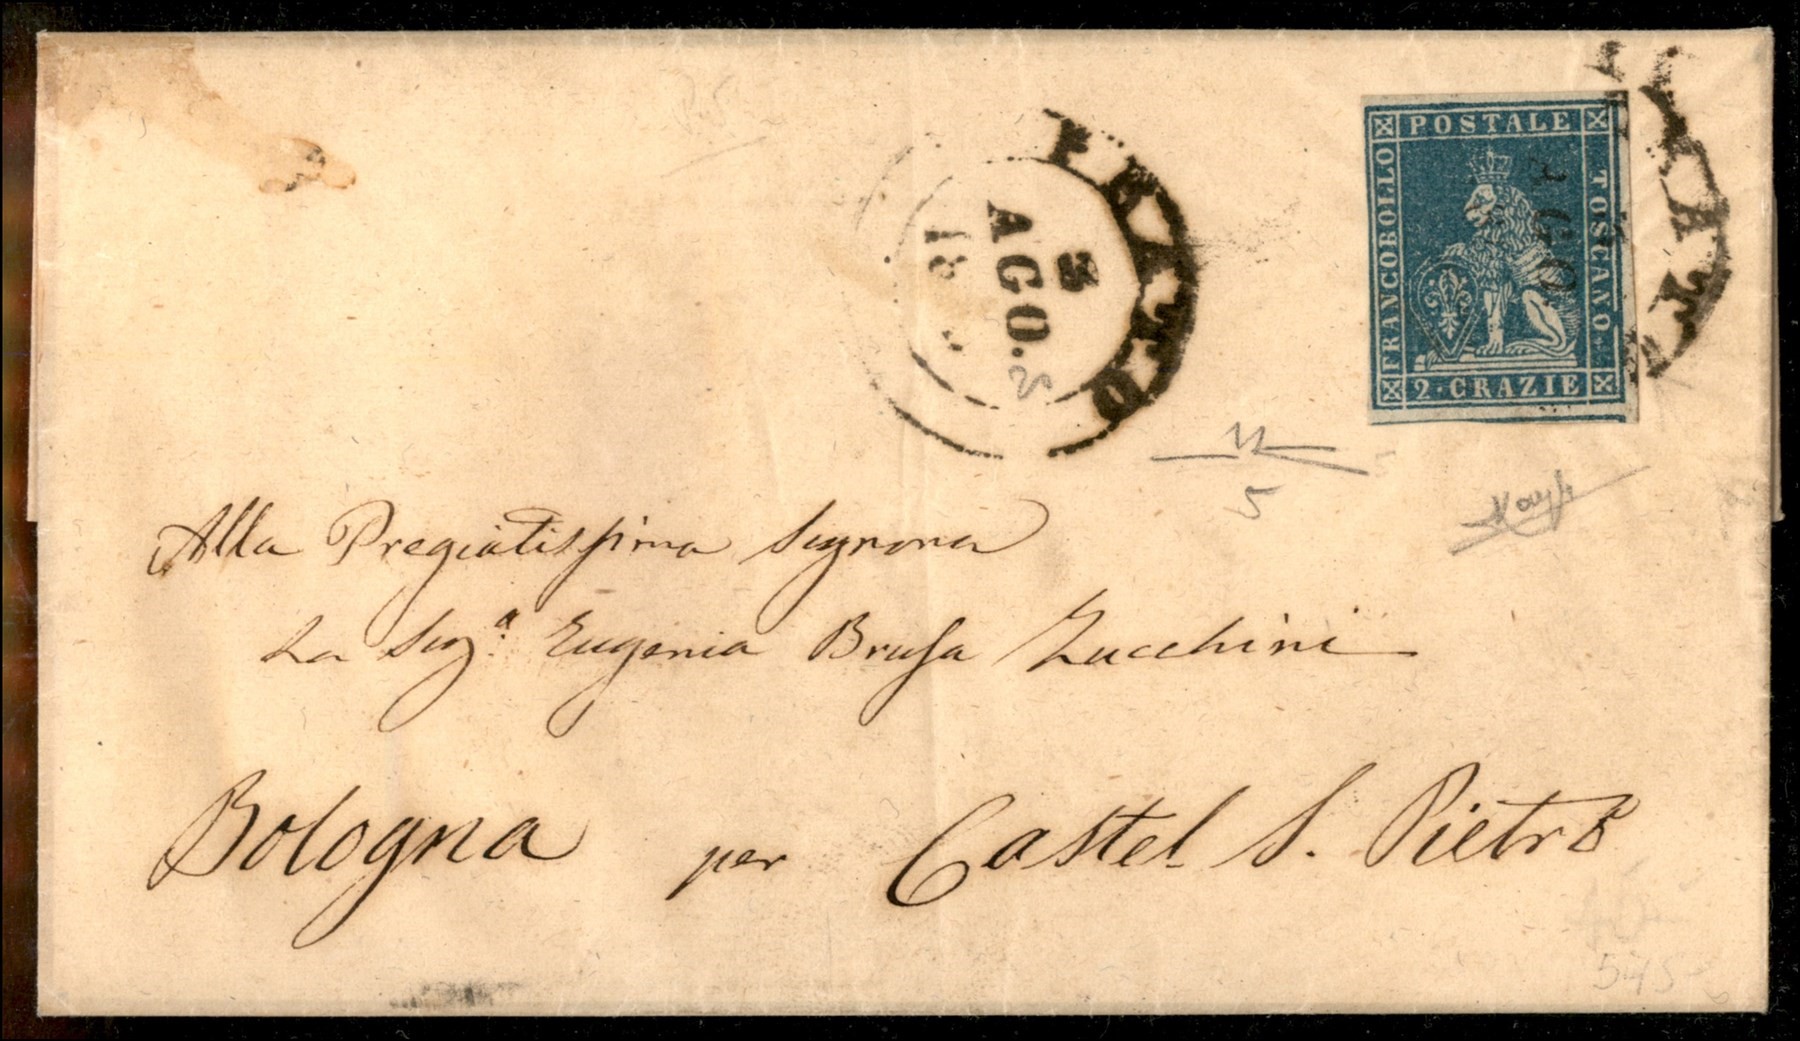 PRATO
3
AGO.
18
POSTALE
FRANCOBOLLO
TOSCANO.
2·CRAZIE
AGO.
RAT
11
5
Alla Pregiatissima Signora
La Sig.ª Eugenia Brusa Zucchini
Bologna per Castel S. Pietro
545